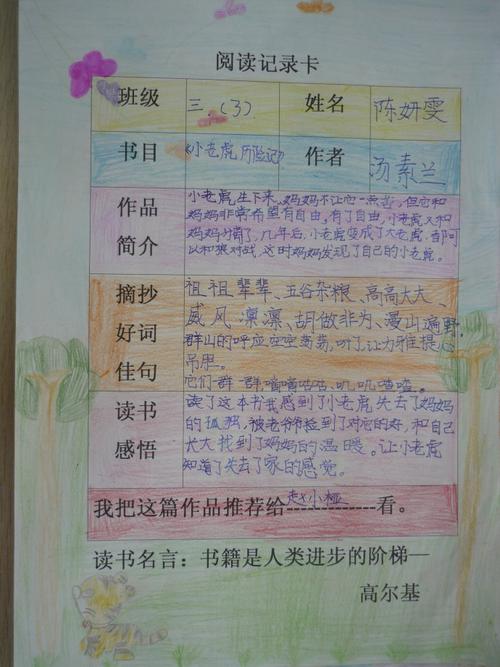 阅读记录卡
班级 三、(3) 姓名 陈妍雯
书目 《小老虎历险记》 作者 汤素兰
作品简介
小老虎生下来,妈妈不让它
妈妈非常希望有自由,有了自由,小老虎又和
妈妈分离了,几年后,小老虎变成了大老虎,都可
以和狼对战,这时妈妈发现了自己的小老虎。
摘抄好词佳句
祖祖辈辈、五谷杂粮、高高大大、
威风凛凛、胡做非为、漫山遍野
群山的呼应空空荡荡,听了让力雅提心
吊胆。
它们群群嘀嘀咕咕、叽叽喳喳。
读书感悟
读了这本书我感到了小老虎失去了妈妈
的孤独,被老爷爷捡到了对它的好,和自己
长大找到了妈妈的温暖。让小老虎
知道了失去了家的感觉。
我把这篇作品推荐给赵小桠看。
读书名言:书籍是人类进步的阶梯—
高尔基